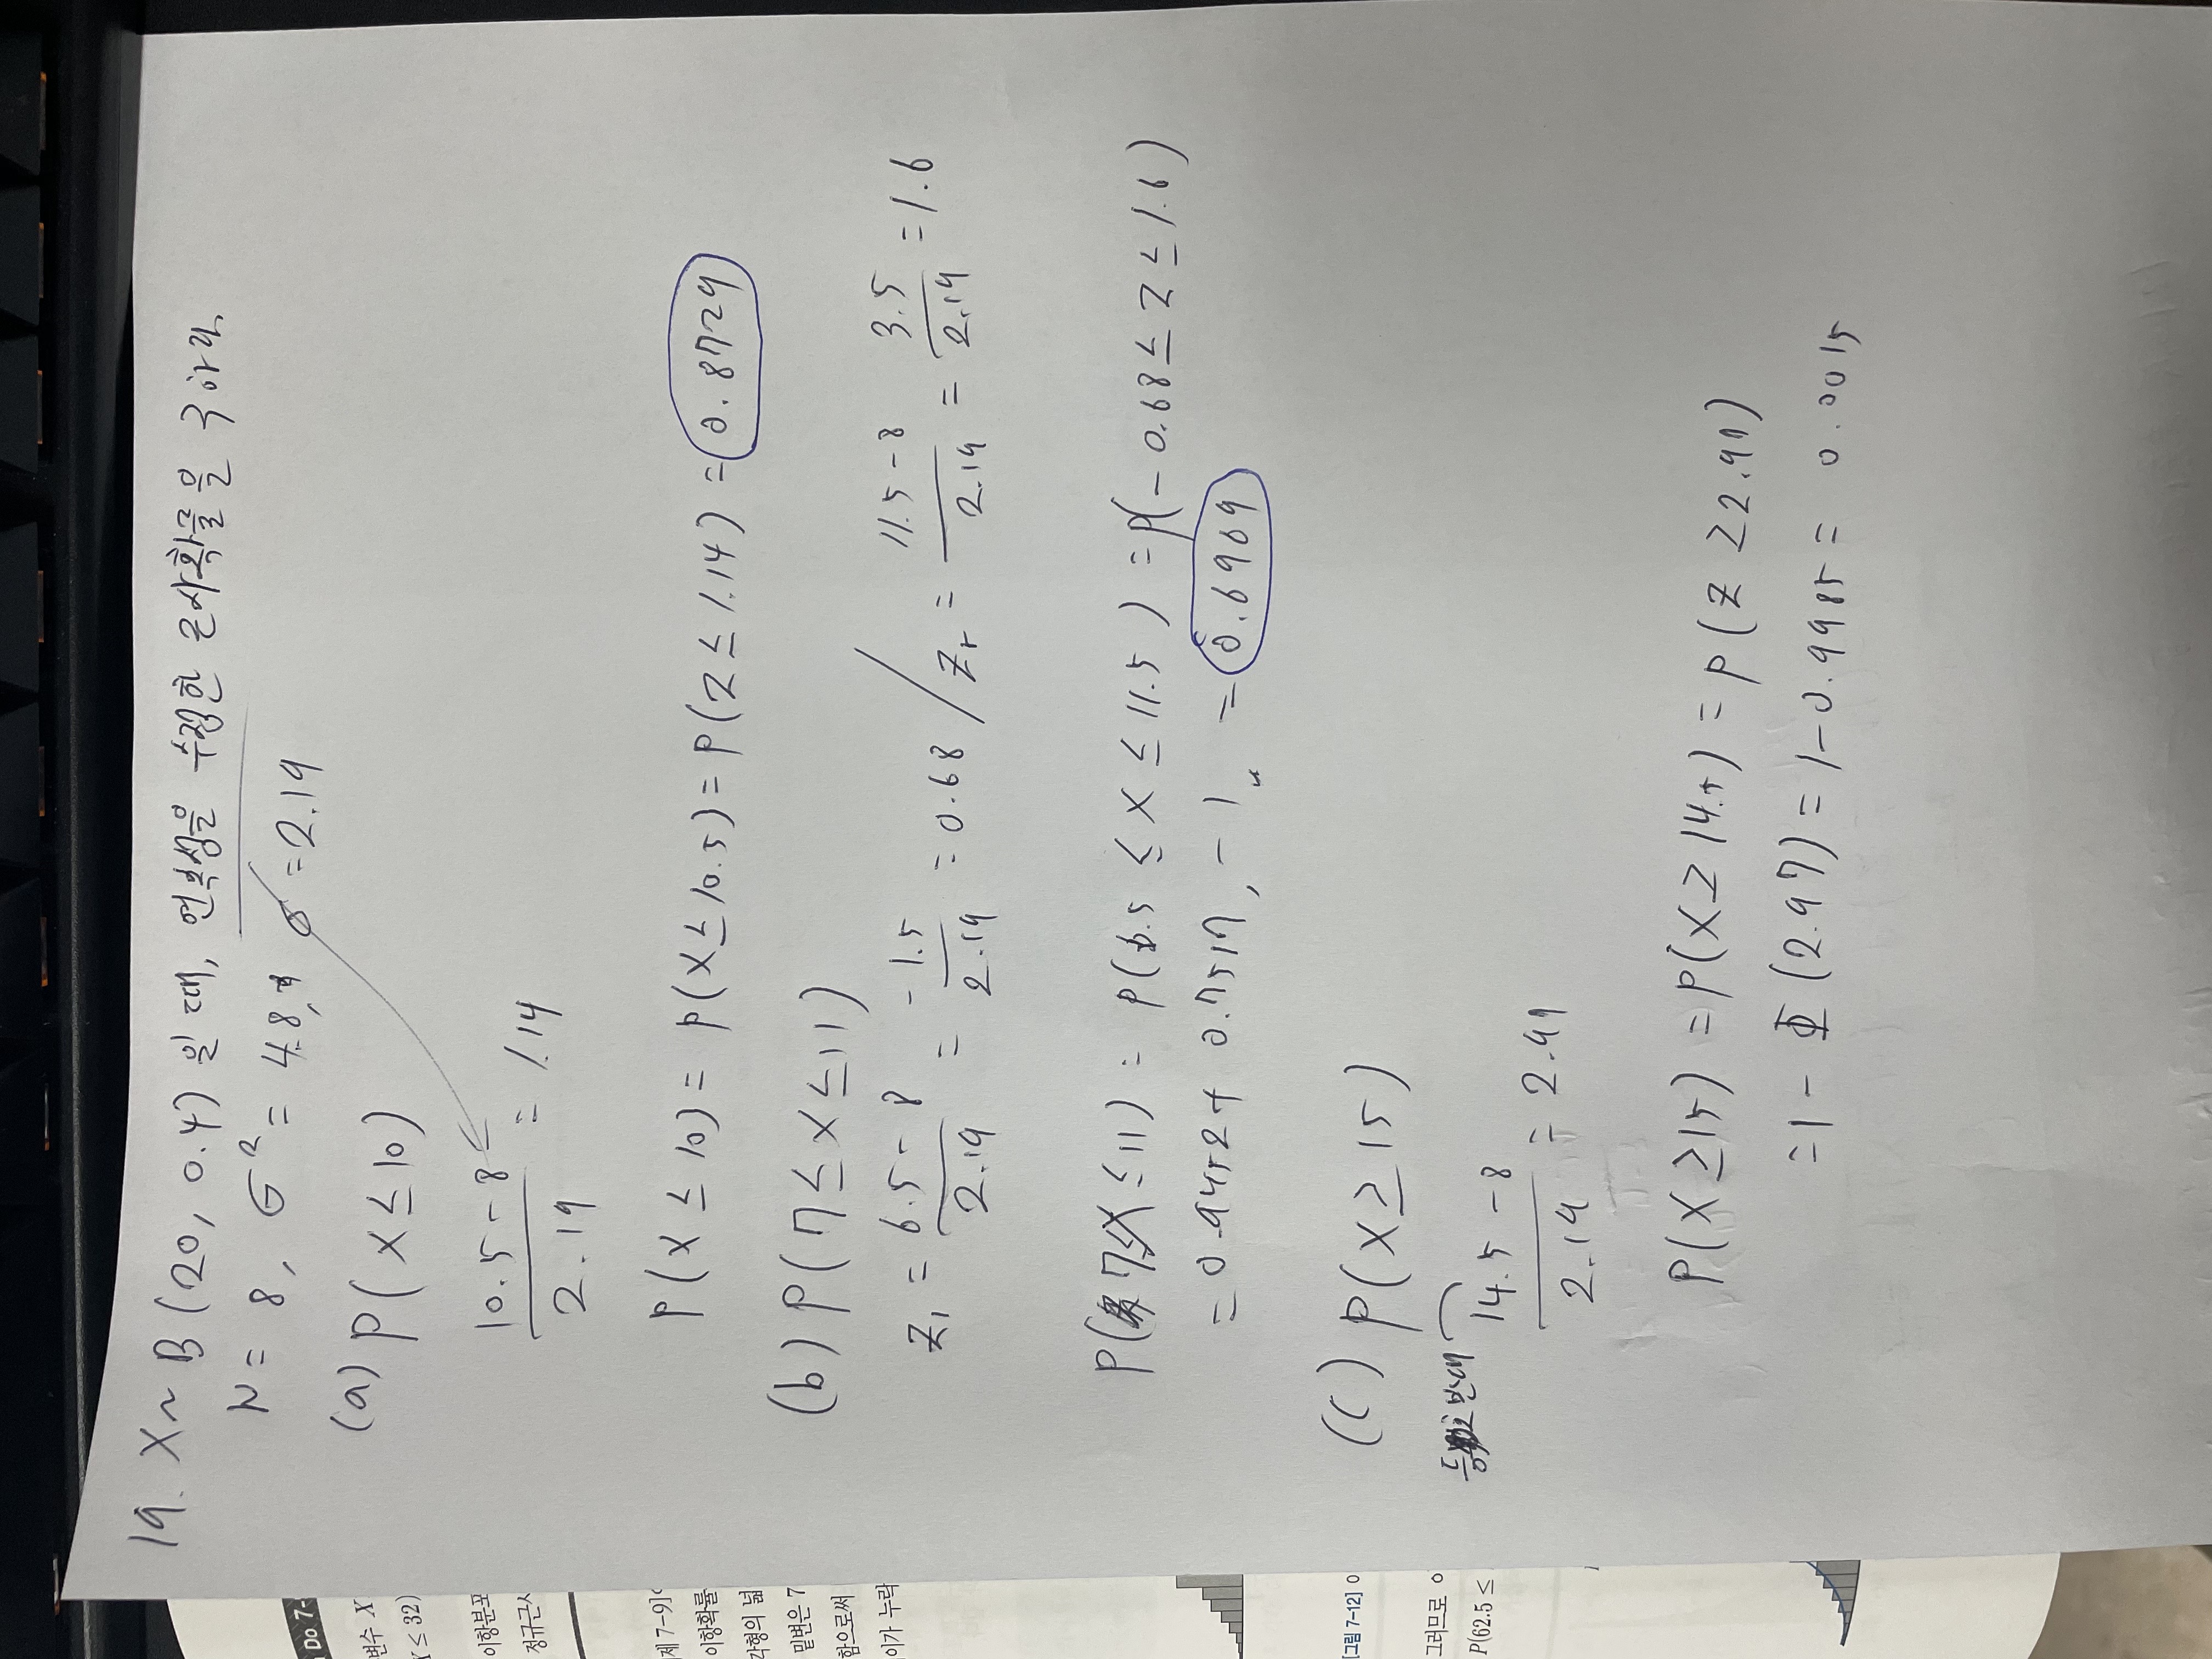 19. X ~ B(20, 0.4) 일 때, 연속성을 수정한 근사확률을 구하라.
N = 8, σ² = 4.8, σ = 2.19
(a) P(X ≤ 10)
10.5 - 8 / 2.19 = 1.14
P(X ≤ 10) = P(X ≤ 10.5) = P(Z ≤ 1.14) = 0.8729
(b) P(7 ≤ X ≤ 11)
Z₁ = 6.5 - 8 / 2.19 = -1.5 / 2.19 = 0.68 / Zr = 11.5 - 8 / 2.19 = 3.5 / 2.19 = 1.6
P(7 ≤ X ≤ 11) = P(6.5 ≤ X ≤ 11.5) = P(-0.68 ≤ Z ≤ 1.6)
= 0.9452 + 0.7517, - 1 = 0.6969
(c) P(X ≥ 15)
등호 반대
14.5 - 8 / 2.19 = 2.97
P(X ≥ 15) = P(X ≥ 14.5) = P(Z ≥ 2.97)
= 1 - Φ(2.97) = 1 - 0.9985 = 0.0015
Do 7-
변수 X
X ≤ 32)
이항분포
정규근사
제 7-9]
이항확률
각형의 넓
밑변은 7
함으로써
이가 누락
[그림 7-12] 이
그러므로 이
P(62.5 ≤